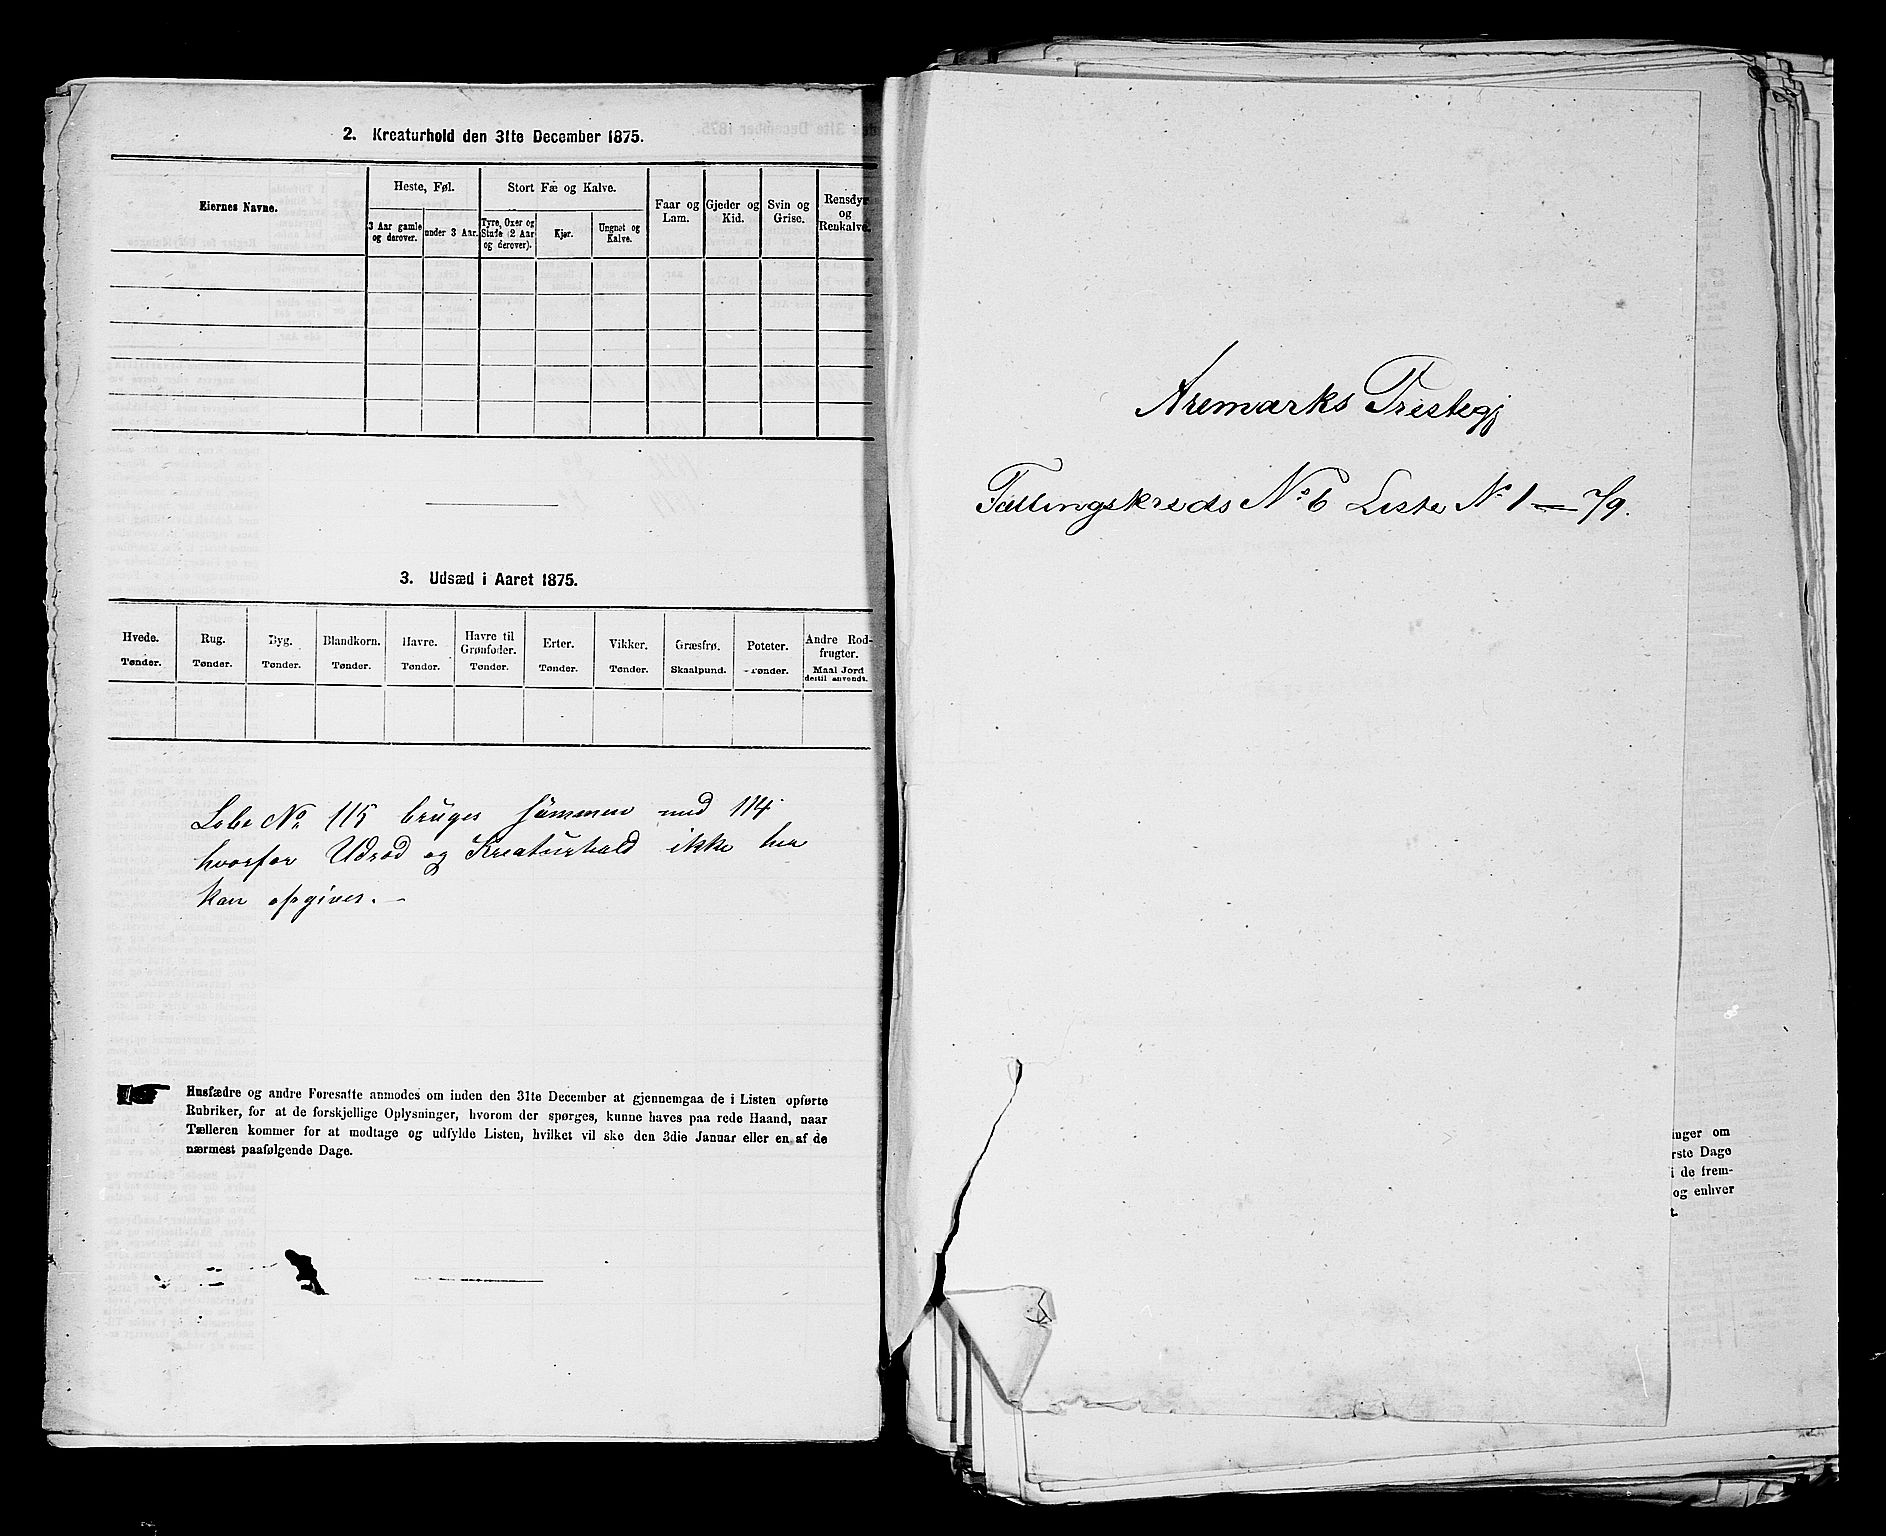 2. Kreaturhold den 31te December 1875.
Eiernes Navne.
Heste, Føl.
Stort Fæ og Kalve.
Faar og Lam.
Gjeder og Kid.
Svin og Grise.
Rensdyr og Renkalve.
3 Aar gamle og derover.
under 3 Aar.
Tyre, Oxer og Stude (2 Aar og derover).
Kjør.
Ungnøt og Kalve.
3. Udsæd i Aaret 1875.
Hvede. Rug. Byg. Blandkorn. Havre. Havre til Grønfoder. Erter. Vikker. Græsfrø. Poteter. Andre Rodfrugter.
Tønder. Tønder. Tønder. Tønder. Tønder. Tønder. Tønder. Tønder. Skaalpund. Tønder. Maal Jord dertil anvendt.
Løbe No 115 bruges sammen med 114
hvorfor Udsæd og Kreaturhold ikke her
kan opgives. —
Husfædre og andre Foresatte anmodes om inden den 31te December at gjennemgaa de i Listen opførte
Rubriker, for at de forskjellige Oplysninger, hvorom der spørges, kunne haves paa rede Haand, naar
Tælleren kommer for at modtage og udfylde Listen, hvilket vil ske den 3die Januar eller en af de
nærmest paafølgende Dage.
Aremarks Prestegj
Tællingskreds No 6 Liste No 1 — 79.
inger om
rste Dage
i de frem-
og enhver
t.